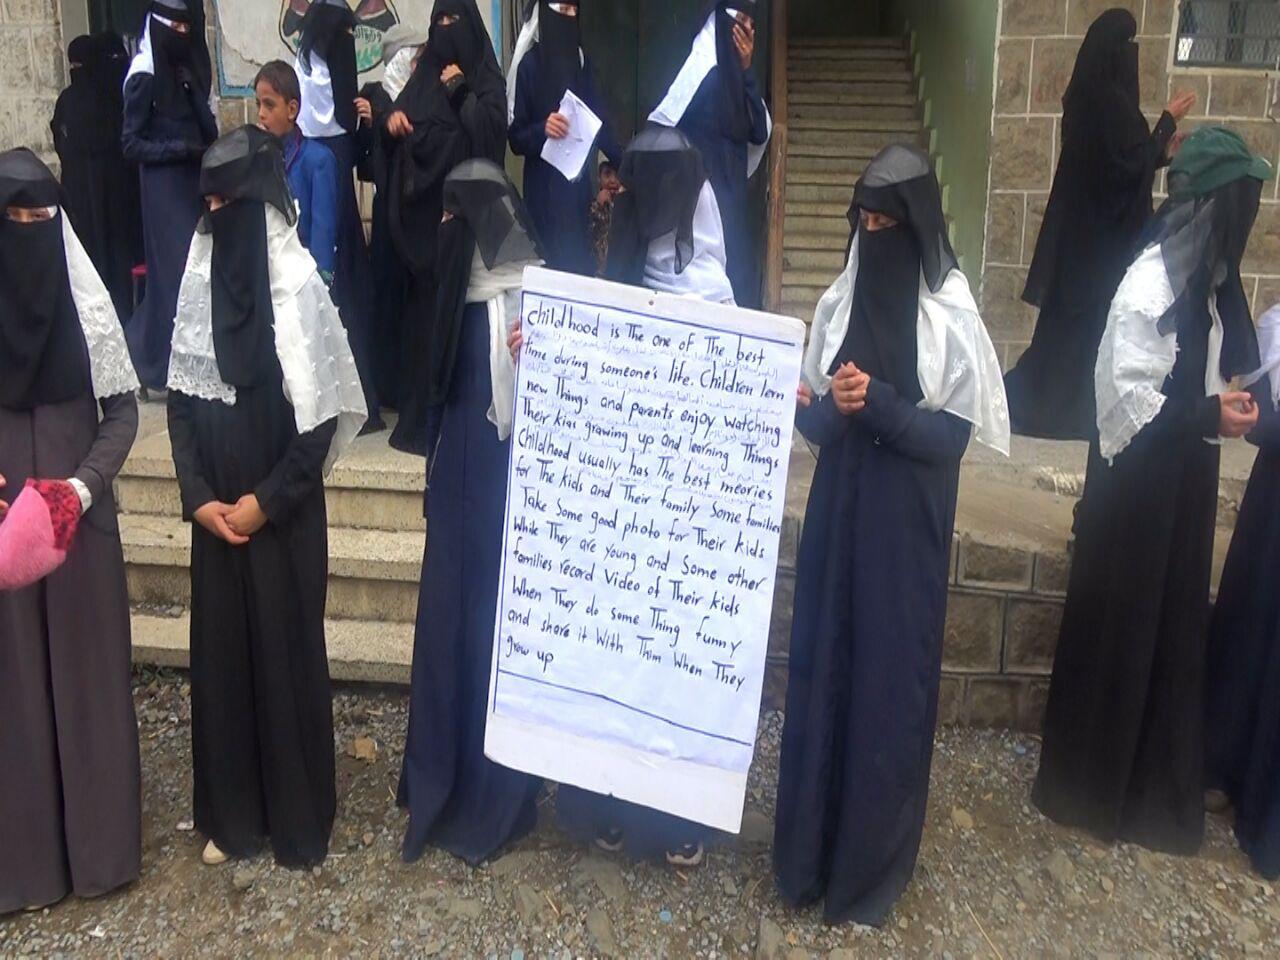 childhood is The one of The best
Time during someone's life. Children lern
new Things and parents enjoy watching
Their kias grawing up and learning Things
childhood usually has The best meories
for The kids and Their family Some families
Take Some good photo for Their kids
While They are young and Some other
families record Video of Their kids
When They do some Thing funny
and share it With Thim When They
grow up